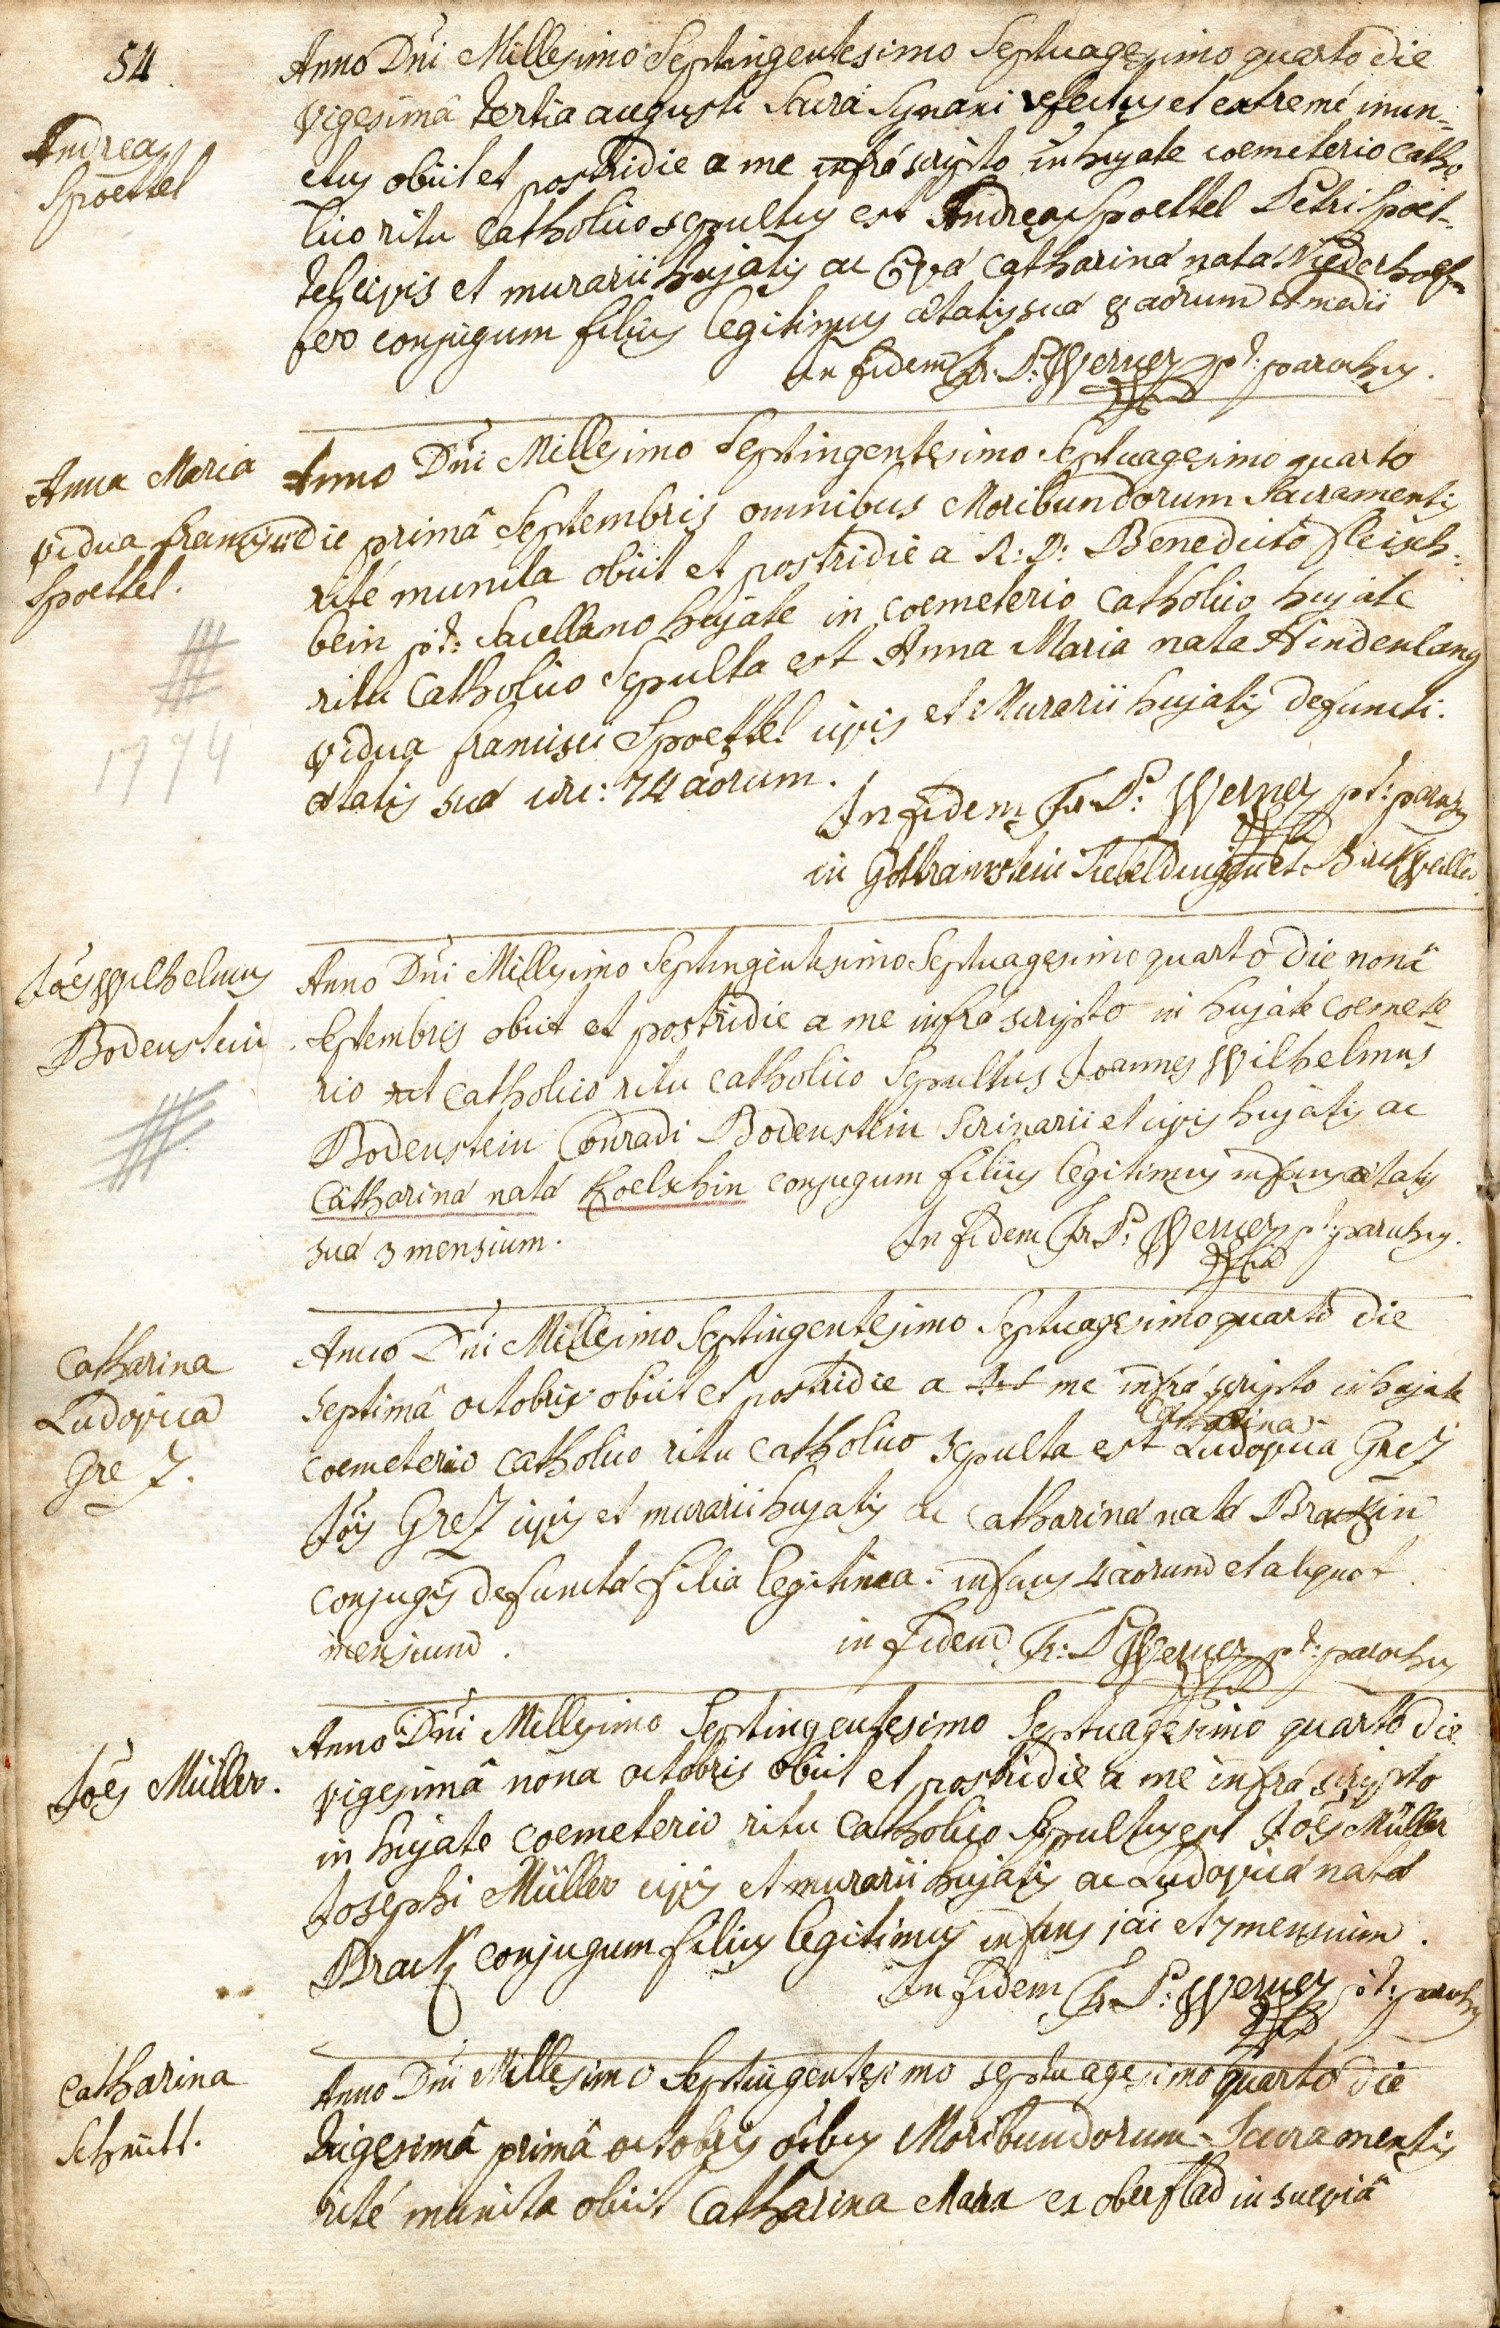 54
Andreas
Spoettel
Anno Dñi Millesimo Septingentesimo Septuagesimo quarto die
vigesimâ tertia augusti Sacrâ Synaxi refectus et extremé inun-
ctus obiit et postridie a me infrá scripto in hujate coemeterio catho
lico ritu catholico sepultus est Andreas Spoettel Petri Spoet-
tel civis et murarii hujatis ac Eva Catharina nata Niederhoef-
fer conjugum filius legitimus ætatis sua 8 aõrum et medii
In fidem Fr: P: Werner p.t: parochus.
Anna Maria
vidua francisci
Spoettel.
1774
Anno Dñi Millesimo Septingentesimo Septuagesimo quarto
die primâ Septembris omnibus Moribundorum Sacramentis
rité munita obiit et postridie a R: P: Benedicto Fleisch-
bein p.t: Sacellano hujate in coemeterio catholico hujate
ritu catholico Sepulta est Anna Maria nata Hindenlang
vidua francisci Spoettel civis et Murarii hujatis defuncti.
ætatis sua circ: 74 aõrum.
In fidem Fr. P: Werner p.t: parochus
in Gotramstein Siebeldingen et Birckweiller.
Jões Wilhelmus
Bodenstein
Anno Dñi Millesimo Septingentesimo Septuagesimo quarto die nonâ
Septembris obiit et postridie a me infrá scripto in hujate coemete-
rio catholico ritu catholico Sepultus Joannes Wilhelmus
Bodenstein Conradi Bodenstein Scrinarii et civis hujatis ac
Catharina nata Koelschin conjugum filius legitimus infans ætatis
sua 3 mensium.
In fidem Fr. P: Werner p.t: parochus.
Catharina
Ludovica
Grez.
Anno Dñi Millesimo Septingentesimo Septuagesimo quarto die
septimâ octobris obiit et postridie a me infrá scripto in hujate
Catharina
coemeterio catholico ritu catholico sepulta est Ludovica Grez
Jõis Grez civis et murarii hujatis ac Catharina nata Brackin
conjugis defuncta filia legitima. infans 4 aõrum et aliquot
mensium.
in fidem Fr: P Werner p.t: parochus
Jões Müller.
Anno Dñi Millesimo Septingentesimo Septuagesimo quarto die
vigesimâ nona octobris obiit et postridie a me infrá scripto
in hujate coemeterio ritu catholico Sepultus est Jões Müller
Josephi Müller civis et murarii hujatis ac Ludovica nata
Brack conjugum filius legitimus infans 1 ai et 7 mensium.
In fidem Fr. P: Werner p.t: parochus
Catharina
Schmitt.
Anno Dñi Millesimo Septingentesimo septuagesimo quarto die
trigesimâ primâ octobris oĩbus Moribundorum Sacramentis
rité munita obiit Catharina Mara ex oberstad in sueviâ